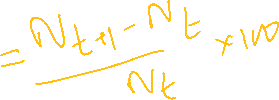 = \frac{N_{t+1} - N_t}{N_t} \times 100